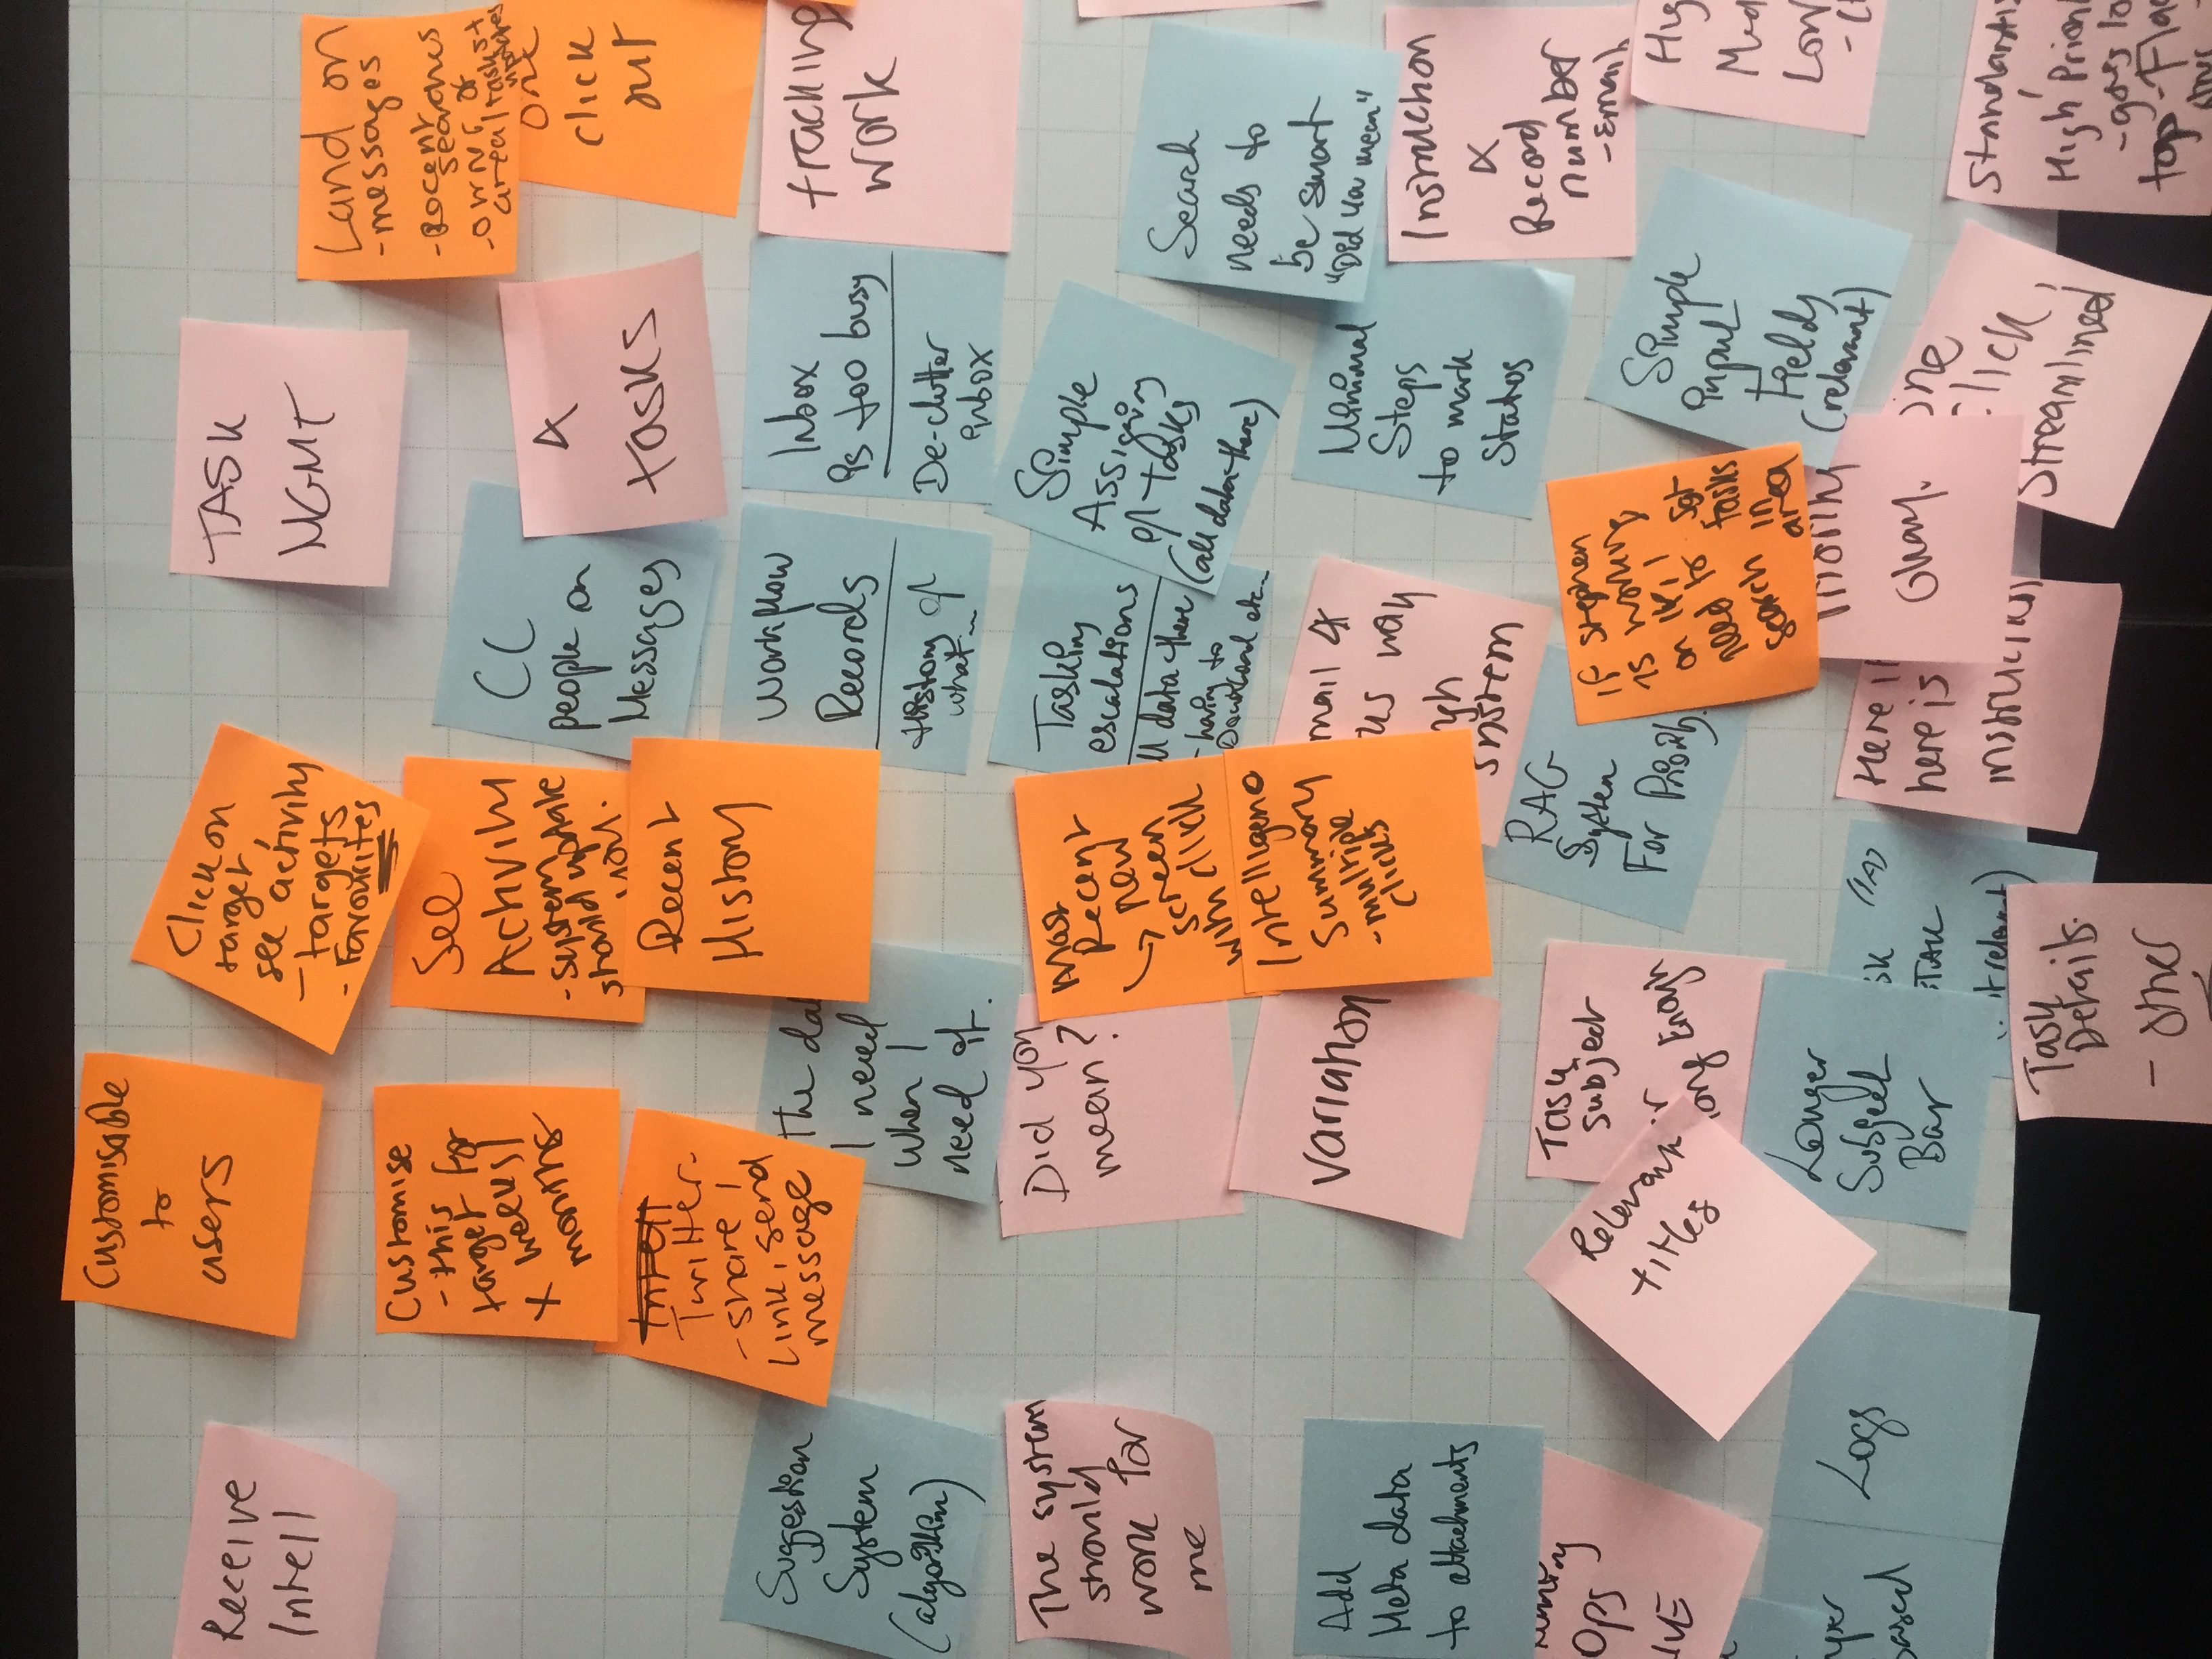 Receive
Intell
Customisable
to
users
Click on
target,
see activity
- targets
- Favourites
TASK
MGMT
Land on
- messages
- Recent
searches
- owner of
area/tasks +
updates
Customise
- this
target for
X weeks/
months
See
Activity
- system
should update
you.
CC
people on
Messages
&
tasks
one
click
out
Twitter-
- share /
link, send
message
Recent
History
Suggestion
System
(algorithm)
The da
I need
when I
need it.
Workflow
Records
History of
what...
Inbox
is too busy
De-clutter
inbox
tracking
work
The system
should
work for
me
Did you
mean?
Most
Recent
→ new
screen
with click
Tasking
escalations
ll data there
- having to
Download etc...
Simple
Assigning
of tasks
(all data there)
Search
needs to
be smart
"Did you mean"
Add
Meta data
to attachments
Variation
Intelligence
Summary
- multiple
clicks
mail &
us way
gh
system
Minimal
Steps
to mark
Status
Instruction
&
Record
number
- Email
OPS
IVE
Relevant
titles
Task
subject
or
ong Enough
RAG
System
For Priority.
if stephen
is working
on it, I
need to
search
sgt
tasks
in
area
Simple
input
Fields
(relevant)
Hig
Med
Low
yper
based
Logs
Longer
Subject
Bar
sk
it relevant)
Here i
here is
instruction
Priority
Okay.
one
click,
Streamlined
Standardis
High Priori
- goes to
top - Fla
Task
Details.
- other